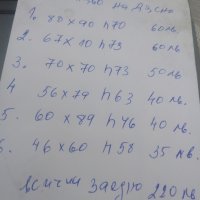 на дясно
1. 80 x 90 h70 60 лв.
2. 67 x 10 h73 60 лв
3. 70 x 70 h73 50 лв
4 56 x 79 h63 40 лв.
5. 60 x 89 h46 40 лв.
6. 46 x 60 h58 35 лв.
всички заедно 220 лв